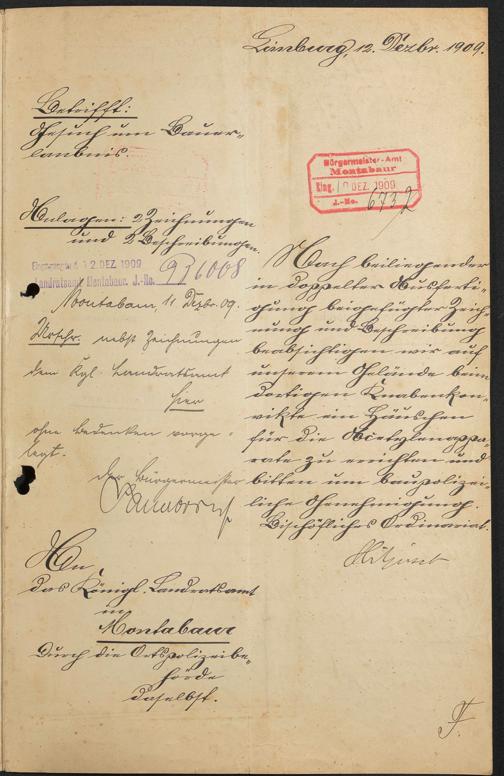 Limburg, 12. Dezbr. 1909.
Betrifft:
Gesuch um Bauer-
laubnis.
Bürgermeister-Amt
Montabaur
Eing. DEZ. 1909
J.-No. 6732
Anlagen: 2 Zeichnungen
und 2 Beschreibungen.
12 DEZ 1909
Landratsamt Montabaur. J.-No.
Montabaur, 11. Dezbr. 09.
Urschr. nebst Zeichnungen
dem Kgl. Landratsamt
hier
ohne Bedenken vorge-
legt.
Der Bürgermeister
Nach beiliegender
in doppelter Ausferti-
gung beigefügter Zeich-
nung und Beschreibung
beabsichtigen wir auf
unserem Gelände beim
dortigen Knabenkon-
vikte ein Häuschen
für die Acetylenappa-
rate zu errichten und
bitten um baupolizei-
liche Genehmigung.
Bischöfliches Ordinariat.
An
das Königl. Landratsamt
in
Montabaur
Durch die Ortspolizeibe-
hörde
daselbst.